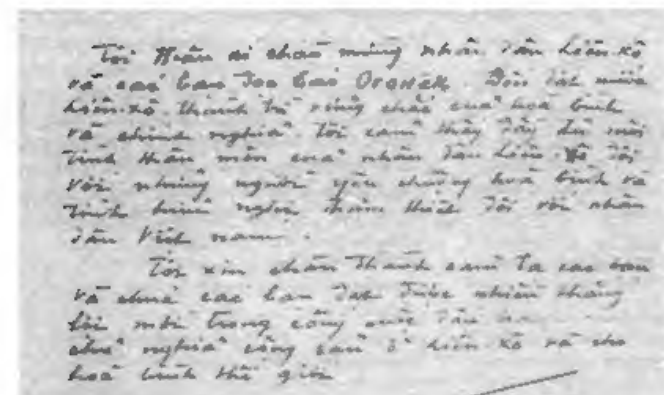 Tôi thân ái chào mừng nhân dân Liên-xô
và các bạn đọc báo Ogonek. Đến đất nước
Liên-xô, thành trì vững chắc của hoà bình
và chính nghĩa, tôi cảm thấy đầy đủ mối
tình thân mến của nhân dân Liên-Xô đối
với những người yêu chuộng hoà bình và
tình hữu nghị thắm thiết đối với nhân
dân Việt nam.
Tôi xin chân thành cảm tạ các bạn
và chúc các bạn đạt được nhiều thắng
lợi mới trong công cuộc
chủ nghĩa cộng sản ở Liên-Xô và cho
hoà bình thế giới